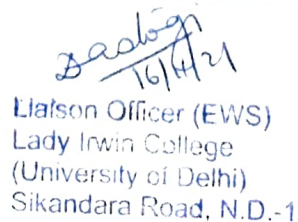 16/11/21
Liaison Officer (EWS)
Lady Irwin College
(University of Delhi)
Sikandara Road, N.D.-1